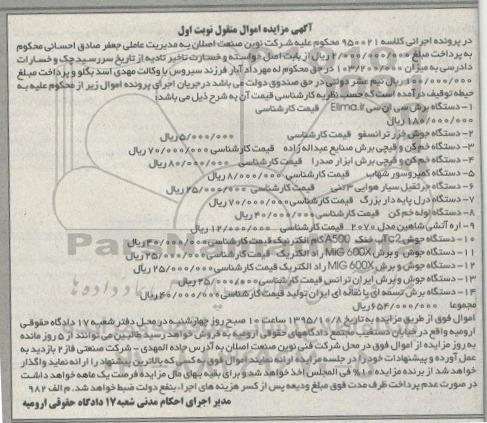 آگهی مزایده اموال منقول نوبت اول
در پرونده اجرائی کلاسه ۹۵۰۰۲۱ محکوم علیه شرکت نوین صنعت اصلان به مدیریت عاملی جعفر صادق احسانی محکوم
به پرداخت مبلغ ۲/۰۰۰/۰۰۰/۰۰۰ ریال از بابت اصل خواسته و خسارت تاخیر تادیه از تاریخ سررسید چک و خسارات
دادرسی به میزان ۱۰۳/۲۰۰/۰۰۰ در حق محکوم له مهرداد آبار فرزند سیروس با وکالت مهدی اسد بگلو و پرداخت مبلغ
۱۰۰/۰۰۰/۰۰۰ ریال نیم عشر دولتی در حق صندوق دولت می باشد در جریان اجرای پرونده اموال زیر از محکوم علیه به
حیطه توقیف در آمده است که حسب نظریه کارشناسی قیمت آن به شرح ذیل می باشد:
۱- دستگاه برش سی ان سی Elima.ir قیمت کارشناسی
۱۸۰/۰۰۰/۰۰۰ ریال
۲- دستگاه جوش خزر ترانسفو قیمت کارشناسی ۵/۰۰۰/۰۰۰ ریال
۳- دستگاه خم کن و قیچی برش صنایع عبداله زاده قیمت کارشناسی ۷۰/۰۰۰/۰۰۰ ریال
۴- دستگاه خم کن و قیچی برش ابزار صدرا قیمت کارشناسی ۸۰/۰۰۰/۰۰۰ ریال
۵- دستگاه کمپروسور شهاب قیمت کارشناسی ۸/۰۰۰/۰۰۰ ریال
۶- دستگاه جرثقیل سیار هوایی ۳ تنی قیمت کارشناسی ۲۵/۰۰۰/۰۰۰ ریال
۷- دستگاه درل پایه دار بزرگ قیمت کارشناسی ۷۰/۰۰۰/۰۰۰ ریال
۸- دستگاه لوله خم کن قیمت کارشناسی ۲۰/۰۰۰/۰۰۰ ریال
۹- اره آتشی شاهین مدل ۲۰۷۰ قیمت کارشناسی ۱۲/۰۰۰/۰۰۰ ریال
۱۰- دستگاه جوش TC2 A500 گام الکتریک قیمت کارشناسی ۴۰/۰۰۰/۰۰۰ ریال
۱۱- دستگاه جوش و برش MIG 600X راد الکتریک قیمت کارشناسی ۲۵/۰۰۰/۰۰۰ ریال
۱۲- دستگاه جوش و برش MIG 600X راد الکتریک قیمت کارشناسی ۲۵/۰۰۰/۰۰۰ ریال
۱۳- دستگاه جوش و برش ایران ترانس قیمت کارشناسی ۲۵/۰۰۰/۰۰۰ ریال
۱۴- دستگاه برش تسمه ای یا نقاله ای ایران تولید قیمت کارشناسی ۴۰/۰۰۰/۰۰۰ ریال
مجموعا ۶۵۴/۰۰۰/۰۰۰ ریال
اموال فوق از طریق مزایده به تاریخ ۱۳۹۵/۱۰/۸ ساعت ۱۰ صبح روز چهارشنبه در محل دفتر شعبه ۱۷ دادگاه حقوقی
ارومیه واقع در خیابان دستغیب مجتمع دادگاههای حقوقی ارومیه به فروش خواهد رسید طالبین می توانند از ۵ روز مانده
به روز مزایده از اموال فوق در محل شرکت فنی نوین صنعت اصلان به آدرس جاده المهدی - شرکت صنعتی فاز ۲ بازدید به
عمل آورده و پیشنهادات خود را در جلسه مزایده ارائه نمایند اموال فوق به کسی که بالاترین پیشنهاد را ارائه نماید واگذار
خواهد شد از برنده مزایده ۱۰% فی المجلس اخذ خواهد شد و برای بقیه بهای مال مزایده فرصت یک ماهه خواهد داشت
در صورت عدم پرداخت ظرف مدت فوق مبلغ ودیعه پس از کسر هزینه های اجرا، بنفع دولت ضبط خواهد شد. م الف ۹۸۲
مدیر اجرای احکام مدنی شعبه ۱۷ دادگاه حقوقی ارومیه